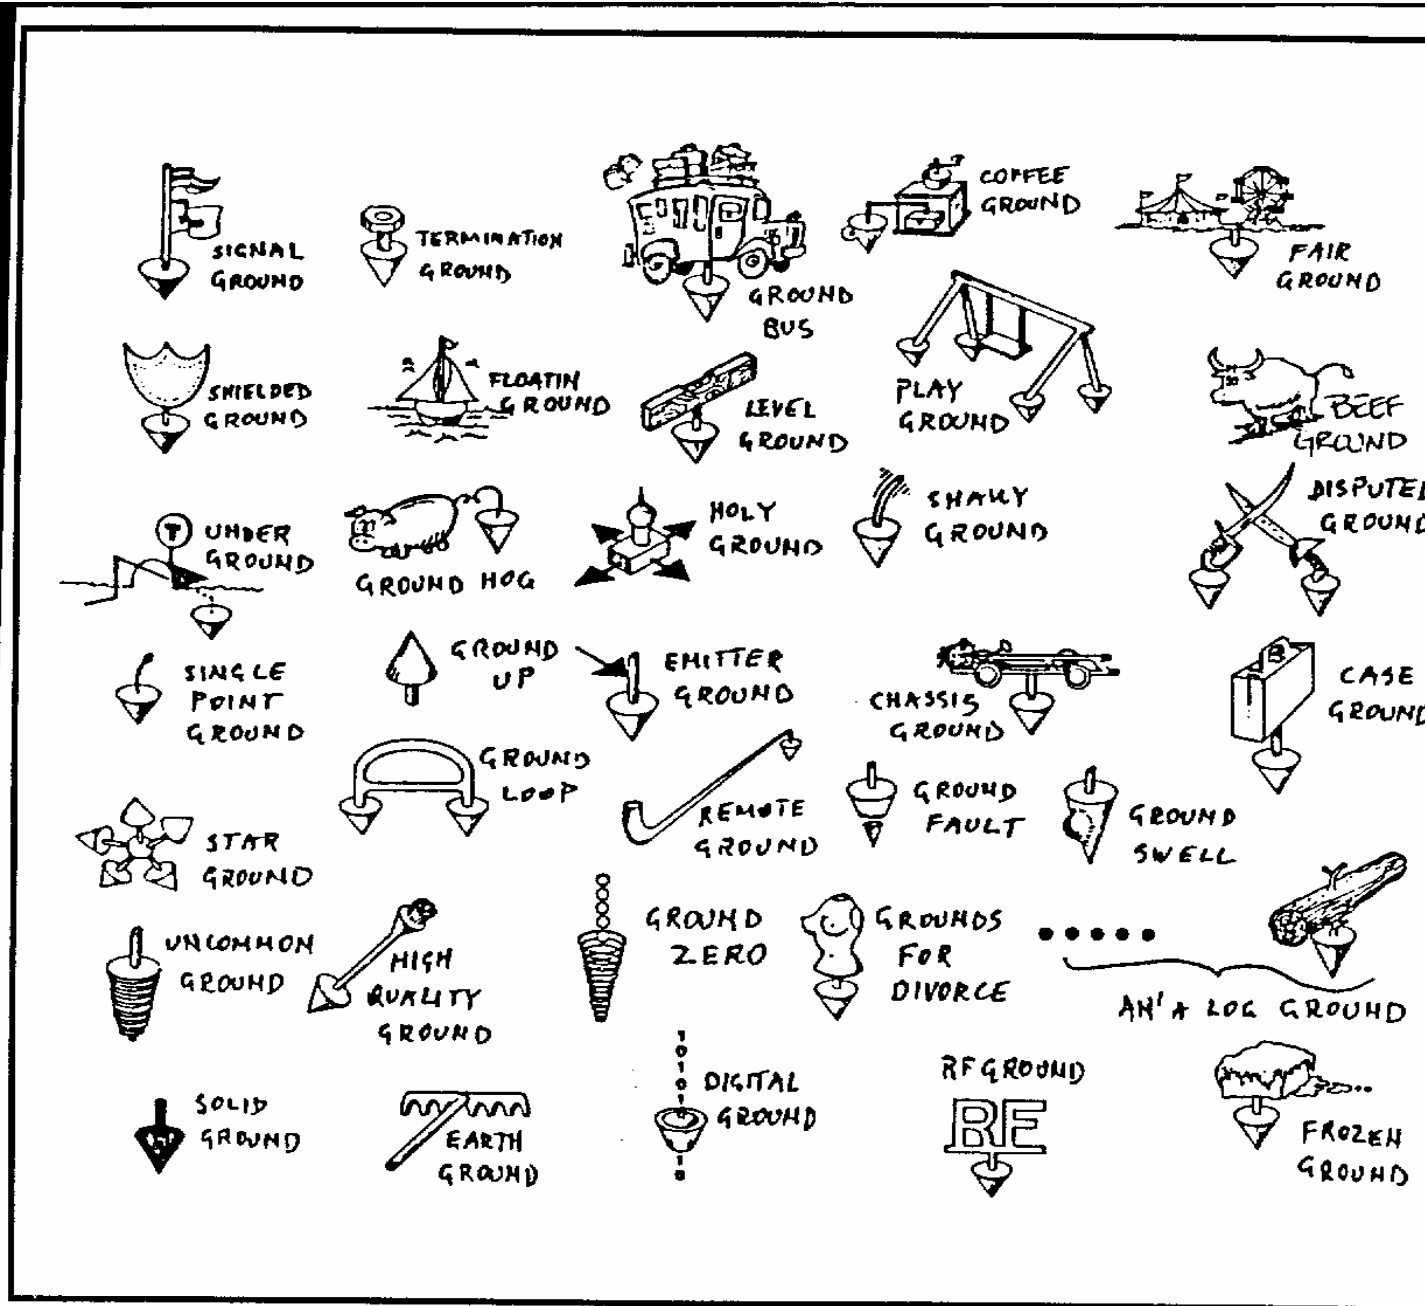 SIGNAL
GROUND
TERMINATION
GROUND
GROUND
BUS
COFFEE
GROUND
FAIR
GROUND
SHIELDED
GROUND
FLOATIN
GROUND
LEVEL
GROUND
PLAY
GROUND
BEEF
GROUND
T
UNDER
GROUND
GROUND HOG
HOLY
GROUND
SHAKY
GROUND
DISPUTED
GROUND
SINGLE
POINT
GROUND
GROUND
UP
EMITTER
GROUND
CHASSIS
GROUND
CASE
GROUND
GROUND
LOOP
REMOTE
GROUND
GROUND
FAULT
GROUND
SWELL
STAR
GROUND
UNCOMMON
GROUND
HIGH
QUALITY
GROUND
GROUND
ZERO
GROUNDS
FOR
DIVORCE
AN' A LOG GROUND
SOLID
GROUND
EARTH
GROUND
1
0
1
0
1
0
1
DIGITAL
GROUND
1
0
RF GROUND
RF
FROZEN
GROUND